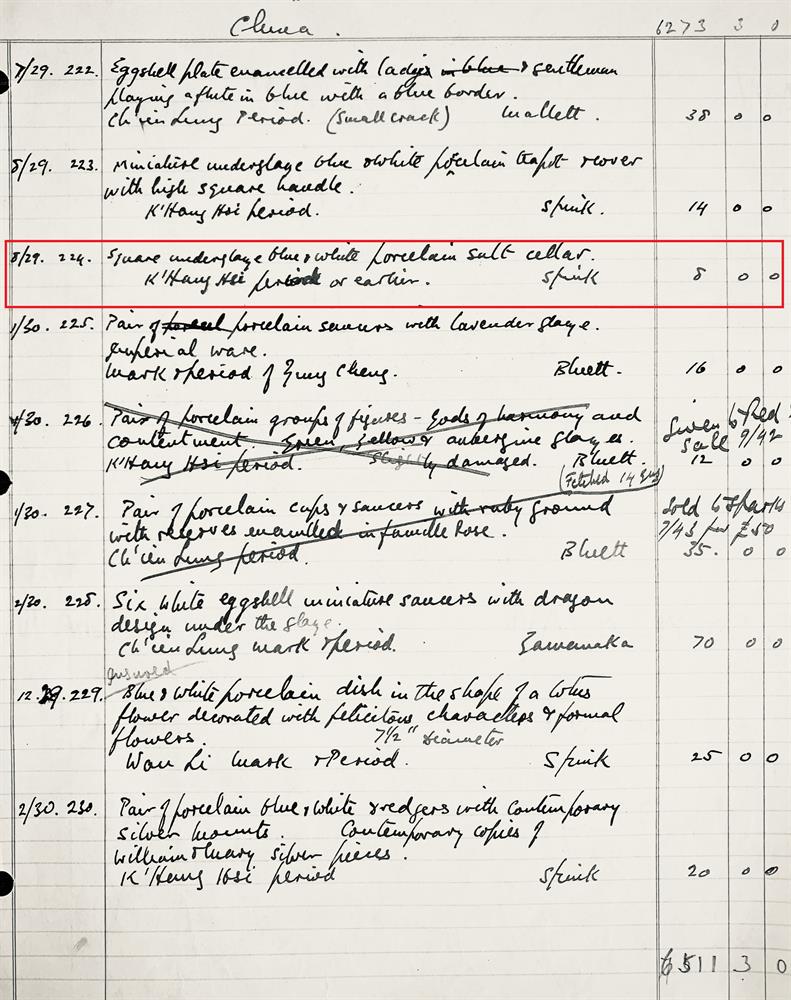 China.    6273 3 0
7/29. 222. Eggshell plate enamelled with ladys in blue & gentleman
playing a flute in blue with a blue border.
Ch'ien Lung Period. (small crack)    Mallett.    38 0 0
8/29. 223. Miniature underglaze blue & white porcelain teapot & cover
with high square handle.
K'Hang Hsi period.    Spink.    14 0 0
8/29. 224. Square underglaze blue & white porcelain salt cellar.
K'Hang Hsi period or earlier.    Spink    8 0 0
1/30. 225. Pair of porcelain saucers with lavender glaze.
Imperial ware.
Mark & period of Yung Cheng.    Bluett.    16 0 0
1/30. 226. Pair of porcelain groups of figures - Gods of harmony and    Given to Red
contentment. Green, Yellow & aubergine glazes.    sale 9/42
K'Hang Hsi period. Slightly damaged. Bluett.    12 0 0
(Fetched 14 gns)
1/30. 227. Pair of porcelain cups & saucers with ruby ground    Sold to Sparks
with reserves enamelled in famille Rose.    7/43 for £50
Ch'ien Lung period.    Bluett    35. 0 0
2/30. 228. Six white eggshell miniature saucers with dragon
design under the glaze.
Ch'ien Lung mark & period.    Yamanaka    70 0 0
Insured
12.29. 229. Blue & white porcelain dish in the shape of a lotus
flower decorated with felicitous characters & formal
flowers. 7½" Diameter
Wan Li mark & Period.    Spink    25 0 0
2/30. 230. Pair of porcelain blue & white with contemporary
silver mounts. Contemporary copies of
William & Mary silver pieces.
K'Hang Hsi period    Spink    20 0 0
6511 3 0